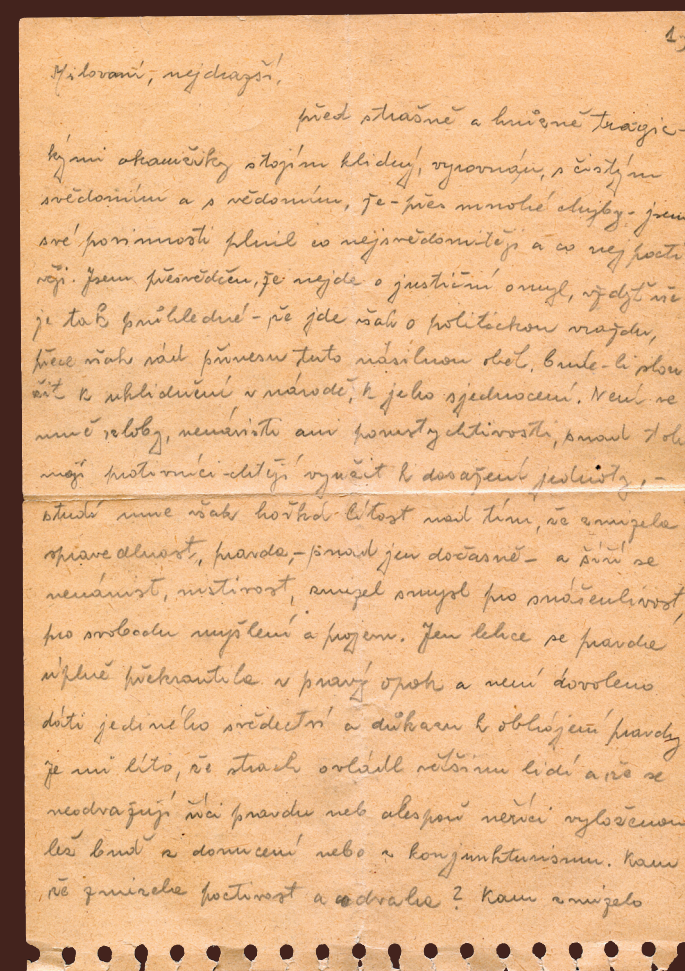 1)
Milovaní, nejdražší!
před strašně a hrůzně tragic-
kými okamžiky stojím klidný, vyrovnán, s čistým
svědomím a s vědomím, že - přes mnohé chyby - jsem
své povinnosti plnil co nejsvědomitěji a co nejpocti
věji. Jsem přesvědčen, že nejde o justiční omyl, vždyť vše
je tak průhledné - že jde však o politickou vraždu,
přece však rád přinesu tuto násilnou oběť, bude-li slou
žit k uklidnění v národě, k jeho sjednocení. Není ve
mně zloby, nenávisti ani pomstychtivosti, snad toho
moji protivníci chtějí využít k dosažení jednoty, -
studí mne však hořká lítost nad tím, že zmizela
spravedlnost, pravda, - snad jen dočasně - a šíří se
nenávist, mstivost, zmizel smysl pro snášenlivost,
pro svobodu myšlení a projevu. Jen lehce se pravda
úplně překroutila v pravý opak a není dovoleno
dáti jediného svědectví a důkazu k obhájení pravdy
Je mi líto, že strach ovládl většinu lidí a že se
neodvažují říci pravdu neb alespoň neříci vyloženou
lež buď z donucení nebo z konjunkturismu. Kam
že zmizela poctivost a odvaha? Kam zmizelo